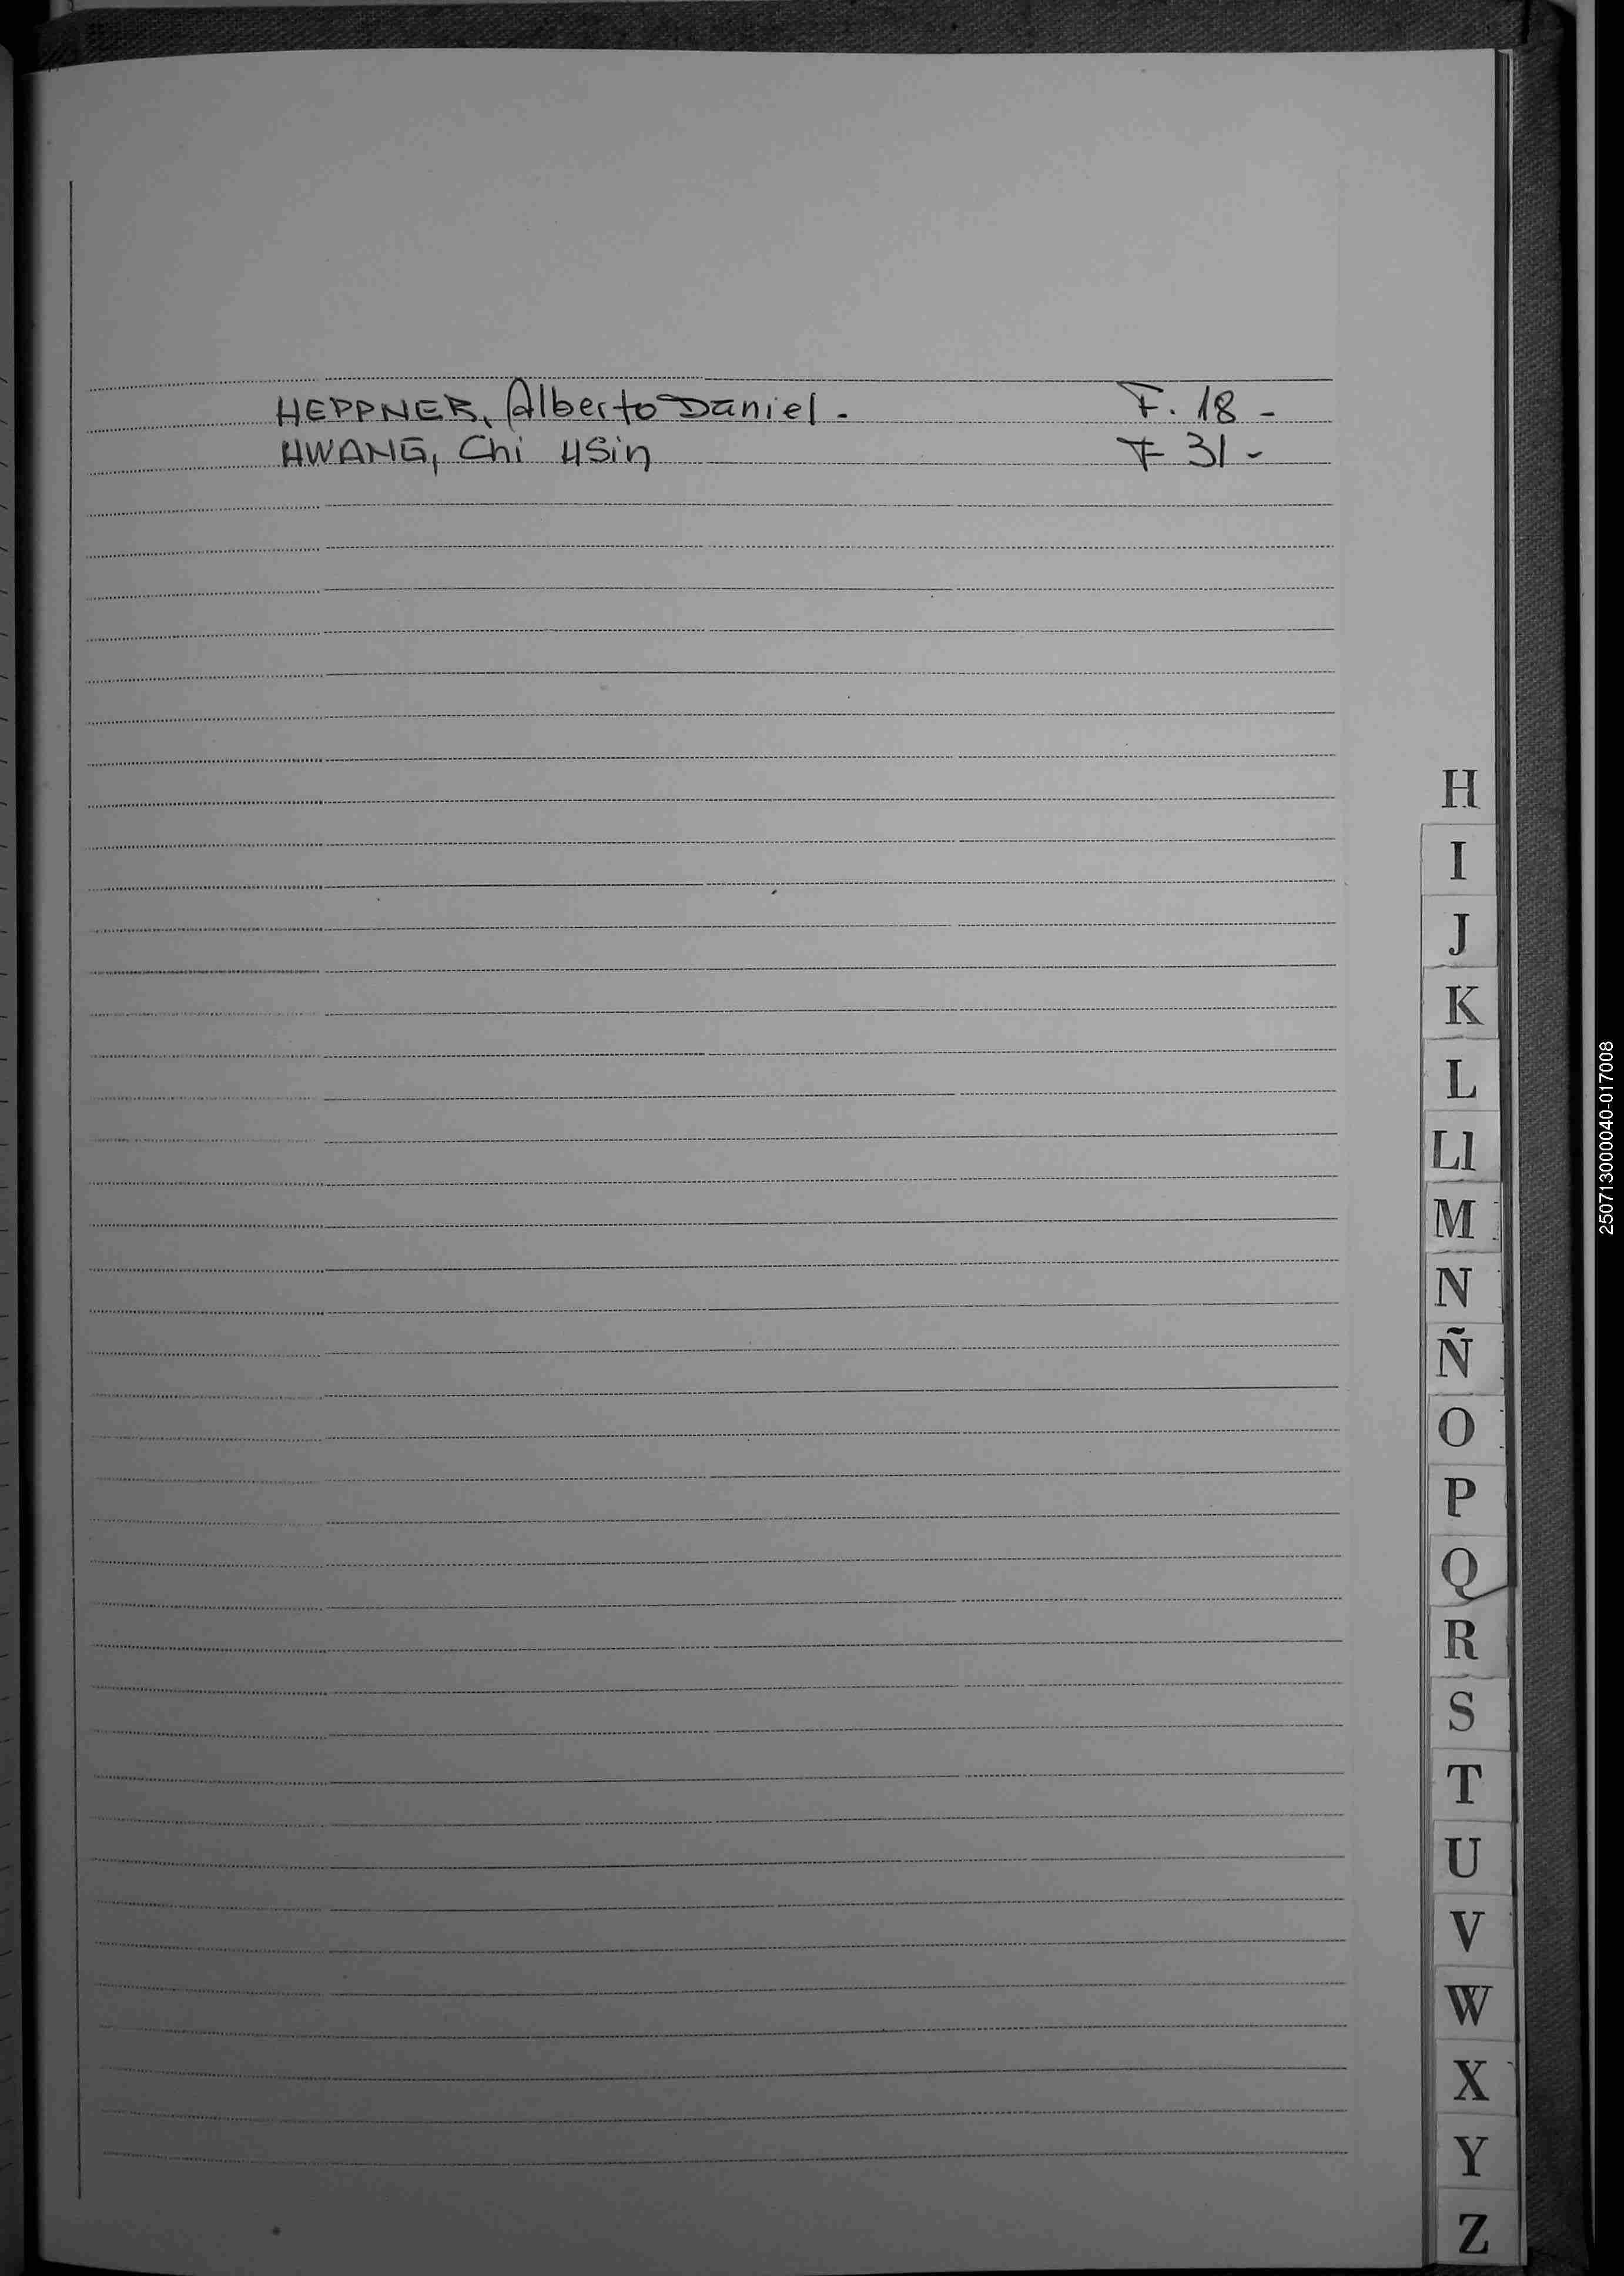 HEPPNER, Alberto Daniel. F. 18 -
HWANG, Chi HSin F 31 -
H
I
J
K
L
Ll
M
N
Ñ
O
P
Q
R
S
T
U
V
W
X
Y
Z
250713000040-017008